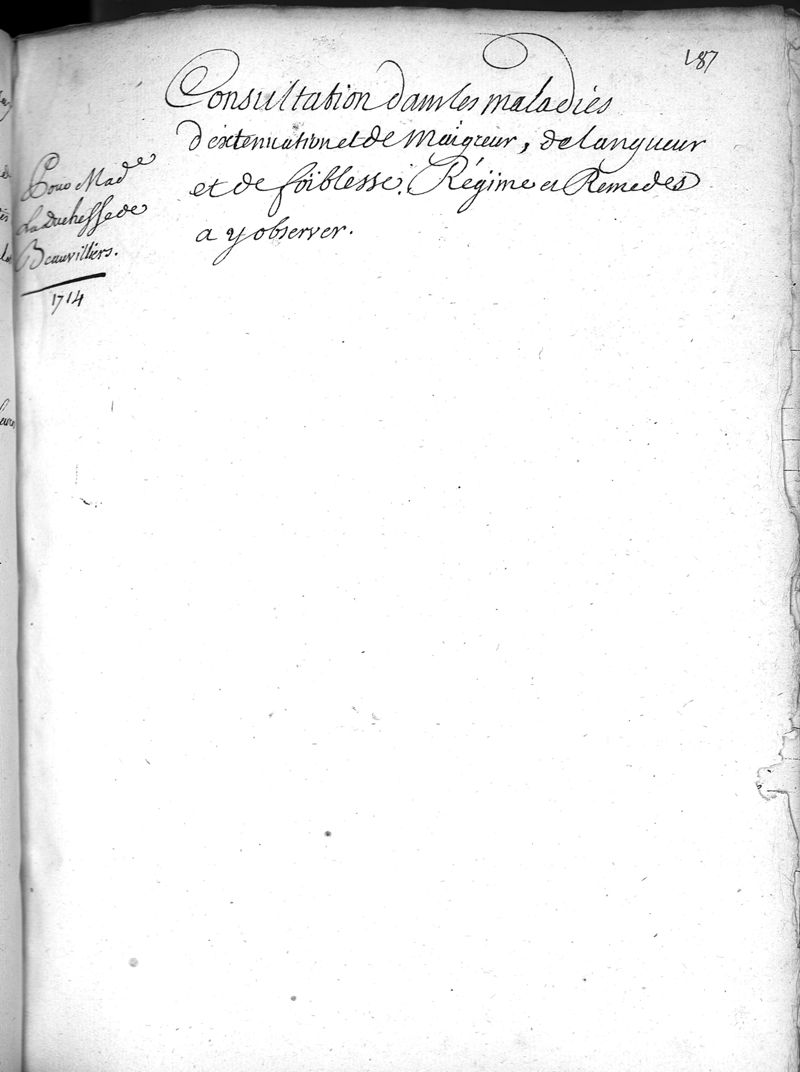 187
Consultation dans les maladies
d'extenuation et de Maigreur, de langueur
et de foiblesse. Régime et Remedes
a y observer.
Pour Mad.e
La Duchesse de
Beauvilliers.
1714